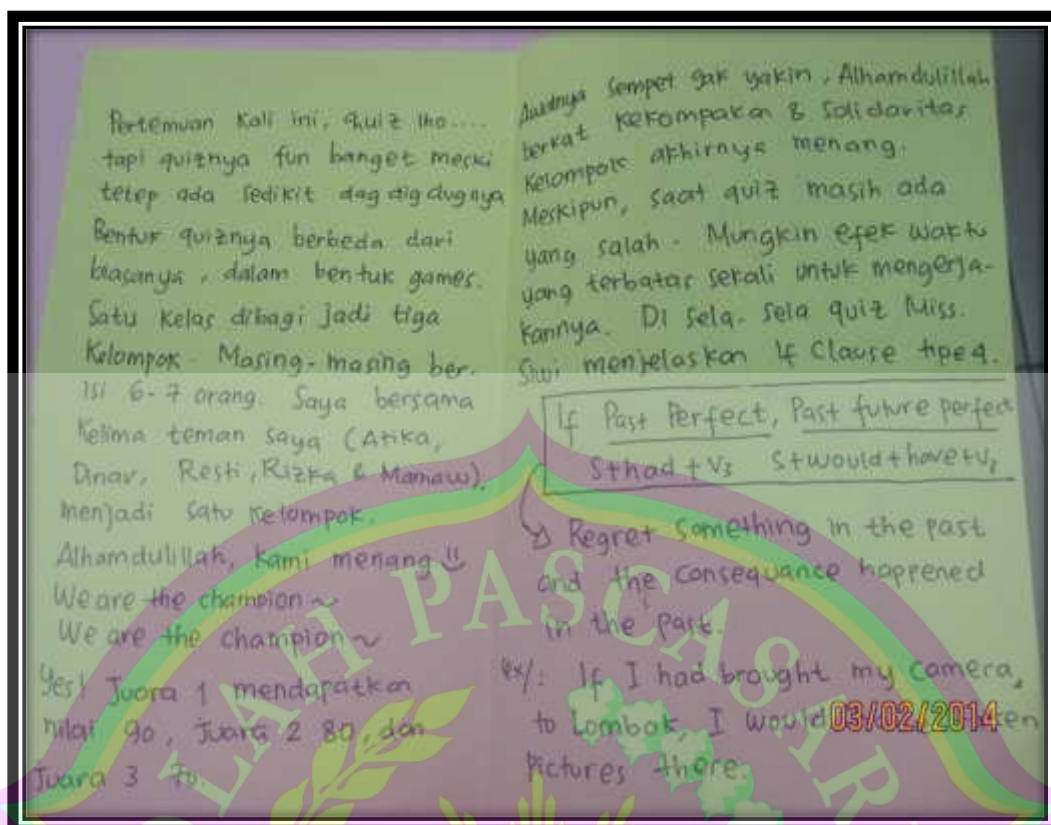 Pertemuan Kali ini, Quiz lho....
tapi quiznya fun banget meski
tetep ada sedikit dag dig dugnya
Bentuk quiznya berbeda dari
biasanya, dalam bentuk games.
Satu Kelas dibagi jadi tiga
Kelompok. Masing-masing ber-
isi 6-7 orang. Saya bersama
Kelima teman saya (Atika,
Dinar, Resti, Rizka & Mamaw),
menjadi satu kelompok.
Alhamdulillah, kami menang
We are the champion ~
We are the champion ~
Yes! Juara 1 mendapatkan
nilai 90, Juara 2 80, dan
Juara 3 70.
Awalnya Sempet gak yakin, Alhamdulillah
berkat kekompakan & Solidaritas
Kelompok akhirnya menang.
Meskipun, saat quiz masih ada
yang salah. Mungkin efek waktu
yang terbatas sekali untuk mengerja-
kannya. Di sela-sela quiz Miss.
Siwi menjelaskan If Clause tipe 4.
If Past Perfect, Past future perfect
S+had+V3 S+would+have+V3
Regret Something in the past
and the consequance happened
in the past.
ex/: If I had brought my camera,
to Lombok, I would en
pictures there.
03/02/2014
LAH PASCASAR